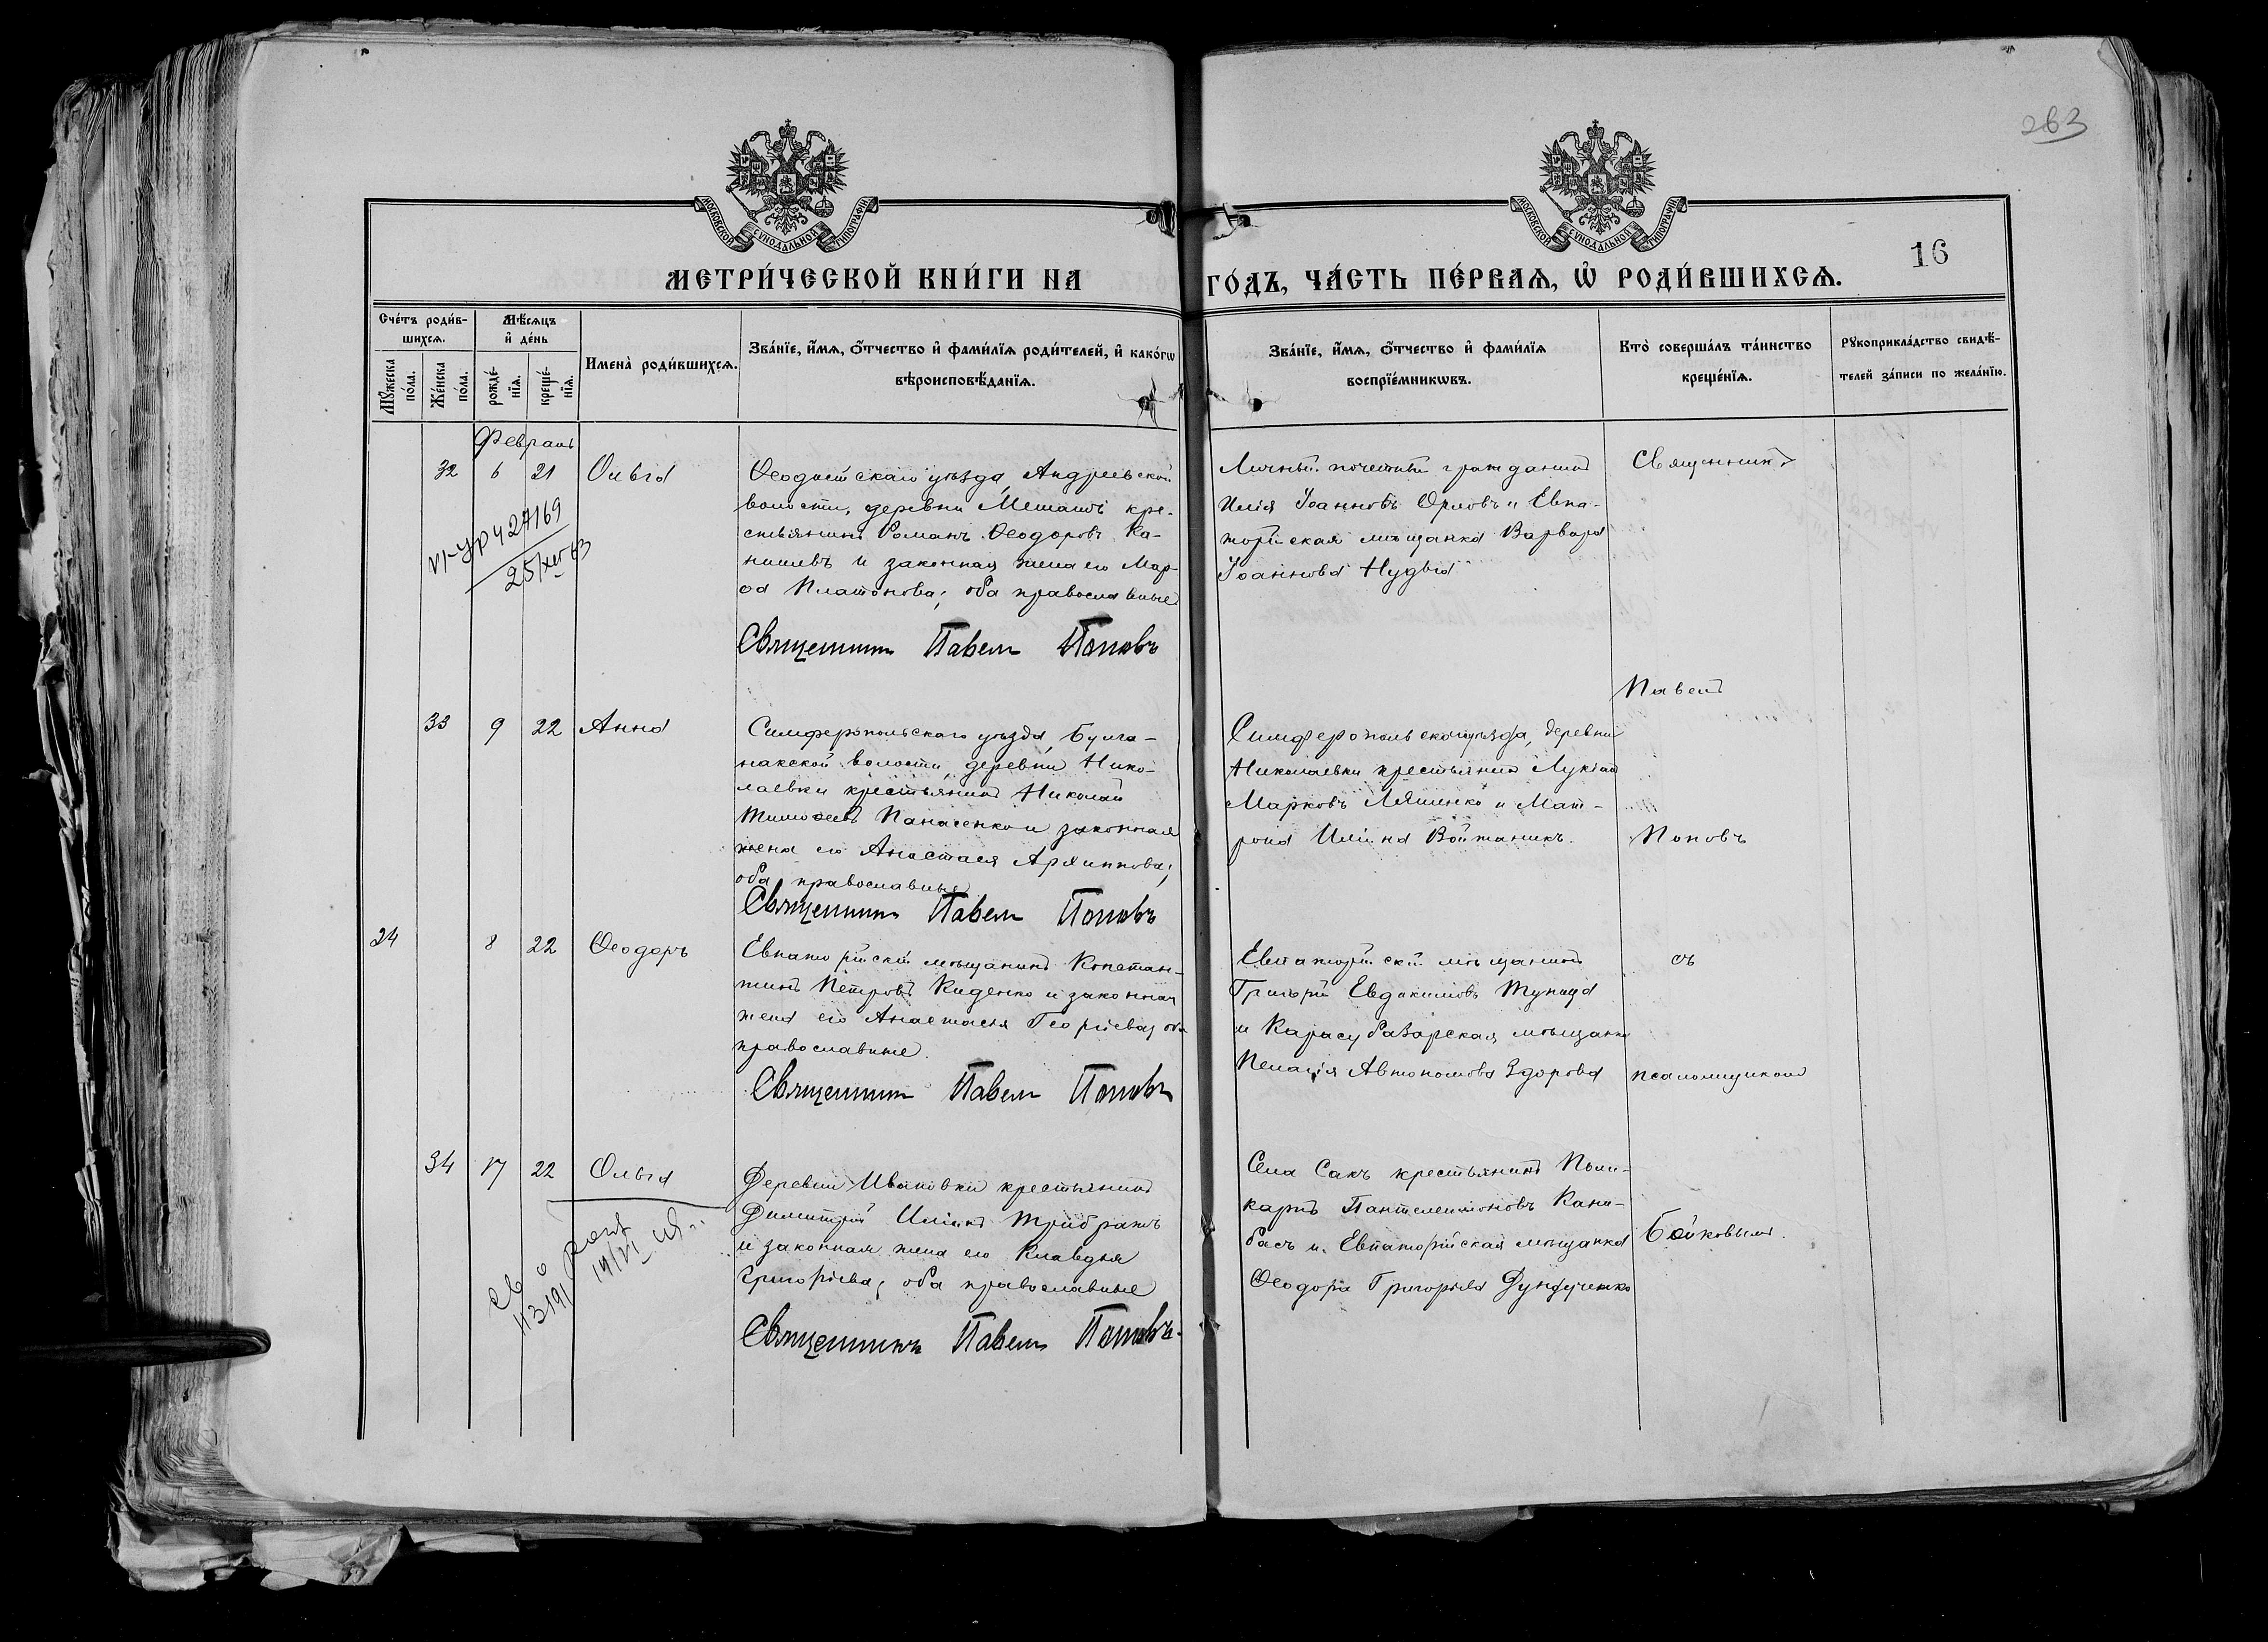 263
МОСКОВСКОЙ СѴНОДАЛЬНОЙ ТИПОГРАФІИ
МОСКОВСКОЙ СѴНОДАЛЬНОЙ ТИПОГРАФІИ
16
МЕТРИ́ЧЕСКОЙ КНИ́ГИ НА ГО́ДЪ, ЧА́СТЬ ПЕ́РВАѦ, Ѡ҆ РОДИ́ВШИХСѦ.
Сче́тъ роди́в-
шихсѧ.
Мꙋ́жеска по́ла.
Же́нска по́ла.
Мѣ́сѧцъ и҆ де́нь
рожде́-нїѧ.
креще́-нїѧ.
Имена̀ роди́вшихсѧ.
Зва́нїе, и҆́мѧ, ѻ҆́тчество и҆ фами́лїѧ роди́телей, и҆ како́гѡ
вѣроисповѣ́данїѧ.
Зва́нїе, и҆́мѧ, ѻ҆́тчество и҆ фами́лїѧ
воспрїе́мникѡвъ.
Кто̀ соверша́лъ та́инство
креще́нїѧ.
Рꙋкоприкла́дство свидѣ́-
телей за́писи по жела́нїю.
Февраль
32 6 21 Ольга
Ѳеодосійскаго уѣзда, Андреевской
волости, деревни кре-
стьянинъ Романъ Ѳеодоровъ Ка-
и законная жена его Мар-
ѳа Платонова; оба православные
Священникъ Павелъ Поповъ
Личный почетный гражданинъ
Илія Іоанновъ Орловъ и Евпа-
торійская мѣщанка Варвара
Іоаннова Нудьга
Священникъ
27169
25/XII 63
Павелъ
33 9 22 Анна
Симферопольскаго уѣзда, Булга-
накской волости, деревни Нико-
лаевки крестьянинъ Николай
Тимоѳеевъ Панасенко и законная
жена его Анастасія Архиппова;
оба православные
Священникъ Павелъ Поповъ
Симферопольскаго уѣзда, деревни
Николаевки крестьянинъ Лукіанъ
Марковъ Ляшенко и Мат-
рона Ильина Войтаникъ.
Поповъ
24 8 22 Ѳеодоръ
Евпаторійскій мѣщанинъ Констан-
тинъ Петровъ Киденко и законная
жена его Анастасія Георгіева; оба
православные.
Священникъ Павелъ Поповъ
Евпаторійскій мѣщанинъ
Григорій Евдокимовъ Тупица
и Карасубазарская мѣщанка
Пелагія Автономова Здорова
съ
псаломщикомъ
34 17 22 Ольга
Деревни Ивановки крестьянинъ
Димитрій Иліинъ Трибратъ
и законная жена его Клавдія
Григорьева; оба православные
Священникъ Павелъ Поповъ.
Села Сакъ крестьянинъ Поли-
карпъ Пантелеимоновъ Кана-
басъ и Евпаторійская мѣщанка
Ѳеодора Григорьева Дундученко
Бойковымъ.
св о рожд